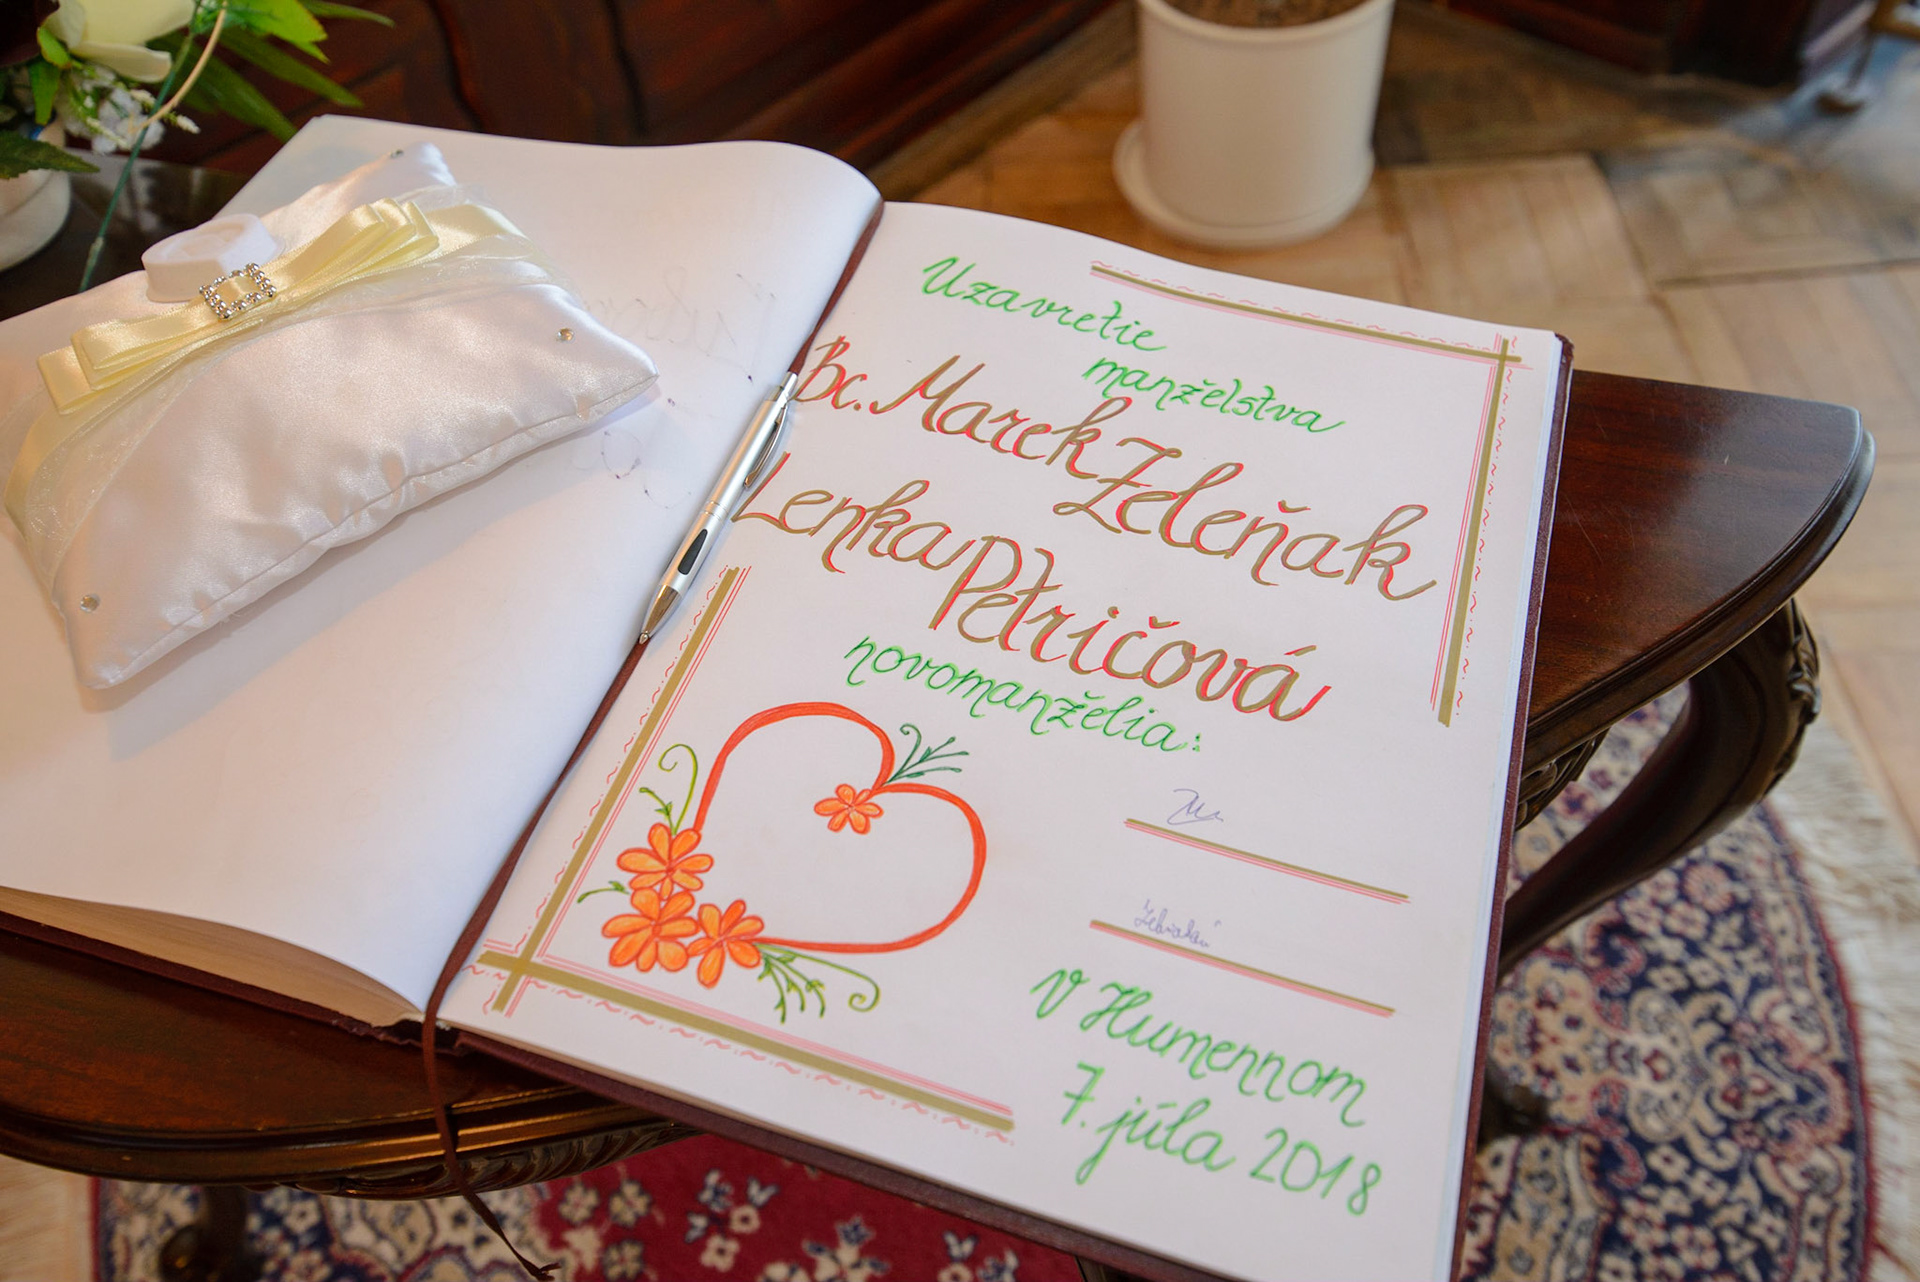 Uzavretie
manželstva
Bc. Marek Zeleňak
Lenka Petričová
novomanželia:
V Humennom
7. júla 2018